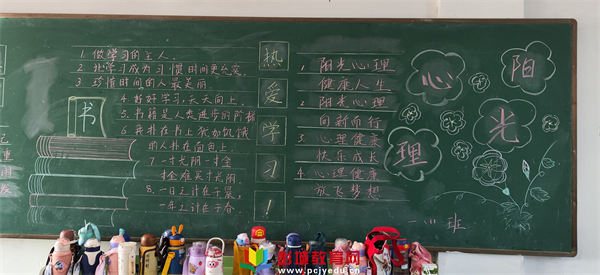 1. 做学习的主人
2. 让学习成为习惯时间更充实
3. 珍惜时间的人最美丽
4. 好好学习,天天向上.
5. 书籍是人类进步的阶梯
6. 我扑在书上犹如饥饿
的人扑在面包上
7. 一寸光阴一寸金
寸金难买寸光阴.
8. 一日之计在于晨,
一年之计在于春
书
热
爱
学
习
!
1. 阳光心理
健康人生
2. 阳光心理
向新而行
3. 心理健康
快乐成长
4. 心理健康
放飞梦想
阳
光
心
理
一、班
创城教育网
www.pcjyedu.cn